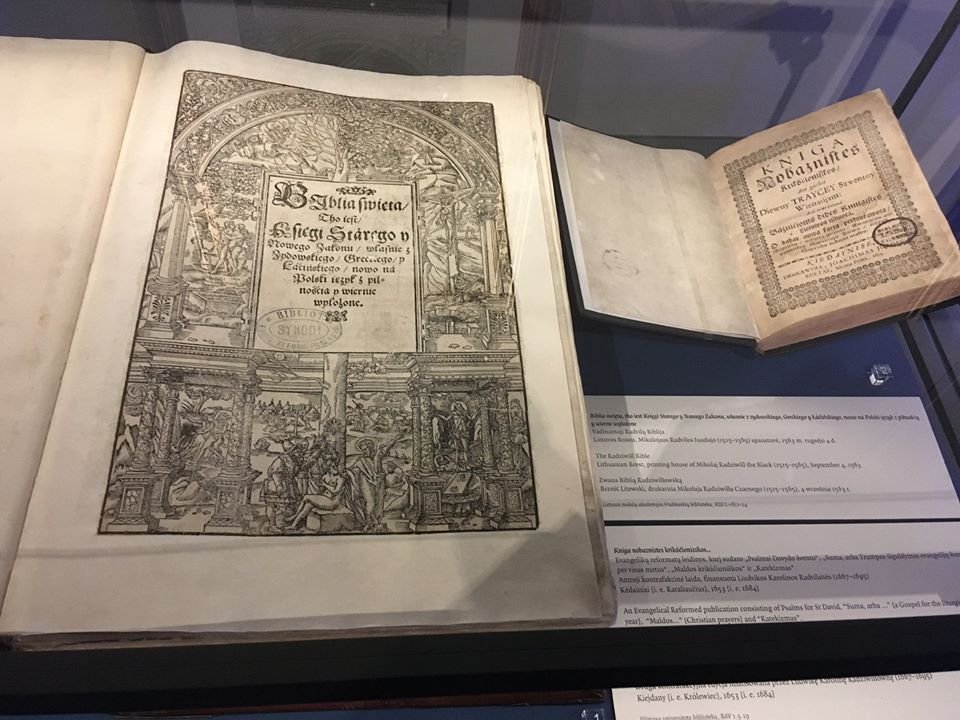 Biblia swieta/
Tho iest/
Księgi Stárego y
Nowego Zakonu/ własnie z
Zydowskiego/ Greckiego/ y
Láćińskiego/ nowo ná
Polski ięzyk z pil-
nośćią y wiernie
wyłożone.
BIBLIOT
SYNOD
KNIGA
Nobaznistes
Krikśćioniszkos/
Diewuy TRAYCEY Szwentoy
Wienatijam;
KIEDAYNISE
DRUKAWOJA, JOACHIMAS
Biblia święta, tho iest Księgi Starego y Nowego Zakonu, własnie z zydowskiego, Greckiego y Łáćińskiego, nowo ná Polski ięzyk z pilnośćią
y wierne wyłożone
Vadinamoji Radvilų Biblija
Lietuvos Brasta, Mikalojaus Radvilos Juodojo (1515–1565) spaustuvė, 1563 m. rugsėjo 4 d.
The Radziwill Bible
Lithuanian Brest, printing house of Mikolaj Radziwill the Black (1515–1565), September 4, 1563
Zwana Biblią Radziwiłłowską
Brześć Litewski, drukarnia Mikołaja Radziwiłła Czarnego (1515–1565), 4 września 1563 r.
Lietuvos mokslų akademijos Vrublevskių biblioteka,
Kniga nobaznistes krikščioniszkos...
Evangelikų reformatų leidinys, kurį sudaro „Psalmai Dovydo švento“, „Suma, arba Trumpas išguldymas evangelijų
per visus metus“, „Maldos krikščioniškos“ ir „Katekizmas“.
Antroji kontrafakcinė laida, finansuota Liudvikos Karolinos Radvilaitės (1667–1695)
Kėdainiai [i. e. Karaliaučius], 1653 [i. e. 1684]
An Evangelical Reformed publication consisting of Psalms for St David, "Suma, arba ..." [a Gospel for the liturgi
year], "Maldos..." [Christian prayers] and "Katekizmas".
Druga kontrafakcyjna edycja finansowana przez Ludwikę Karolinę Radziwiłłównę (1667–1695)
Kiejdany [i. e. Królewiec], 1653 [i. e. 1684]
Vilniaus universiteto biblioteka, BAV 1.5.13